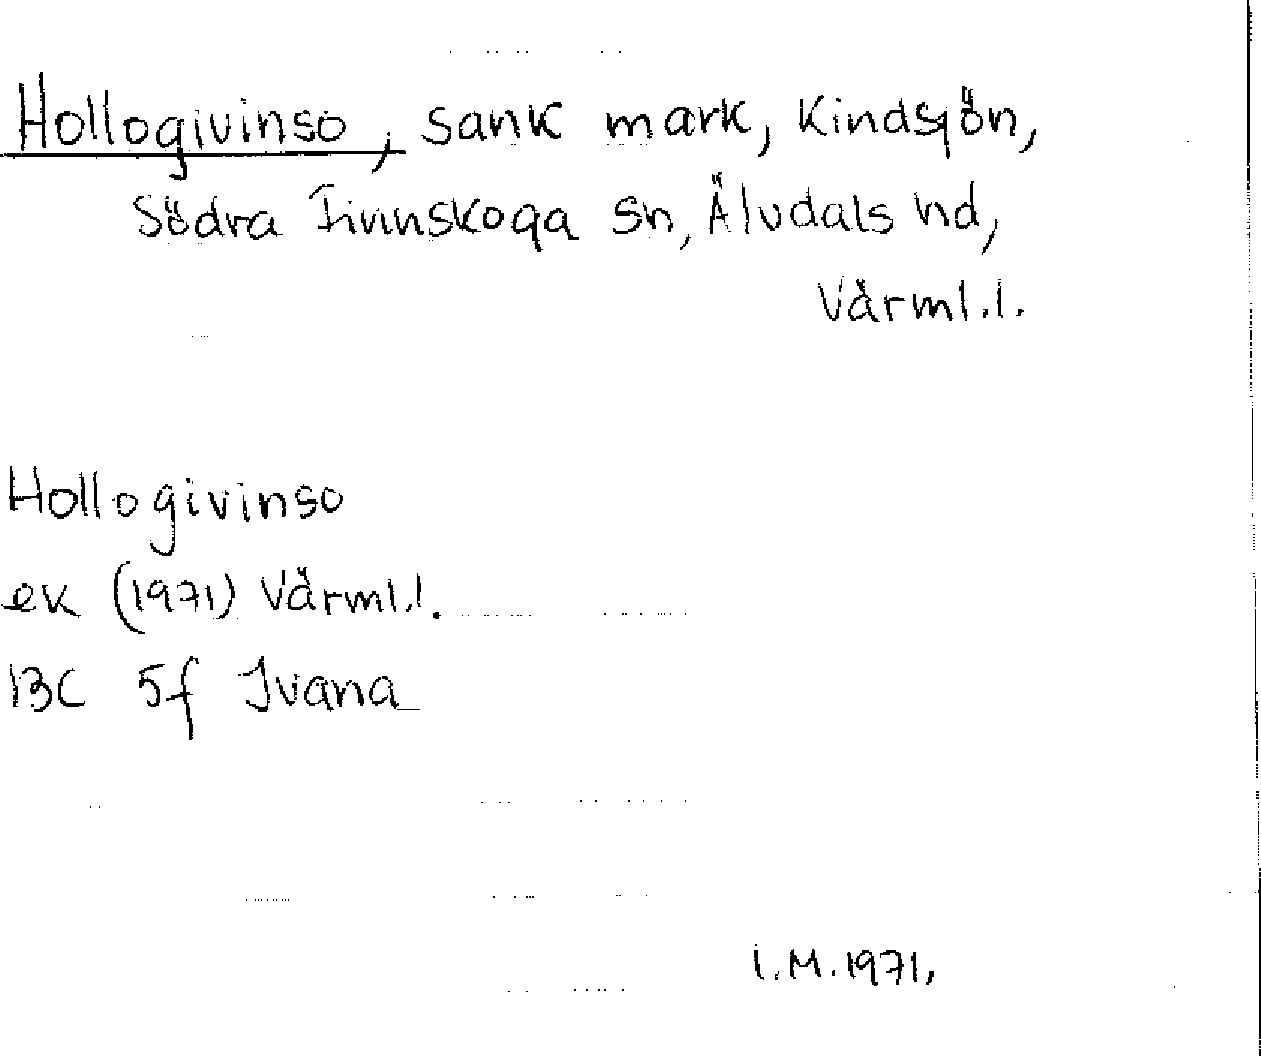 Hollogivinso, sank mark, Kindsjön,
Södra Finnskoga sn, Älvdals hd,
Värml.l.
Hollogivinso
ek (1971) Värml.l.
13C 5f Ivana
I.M.1971,